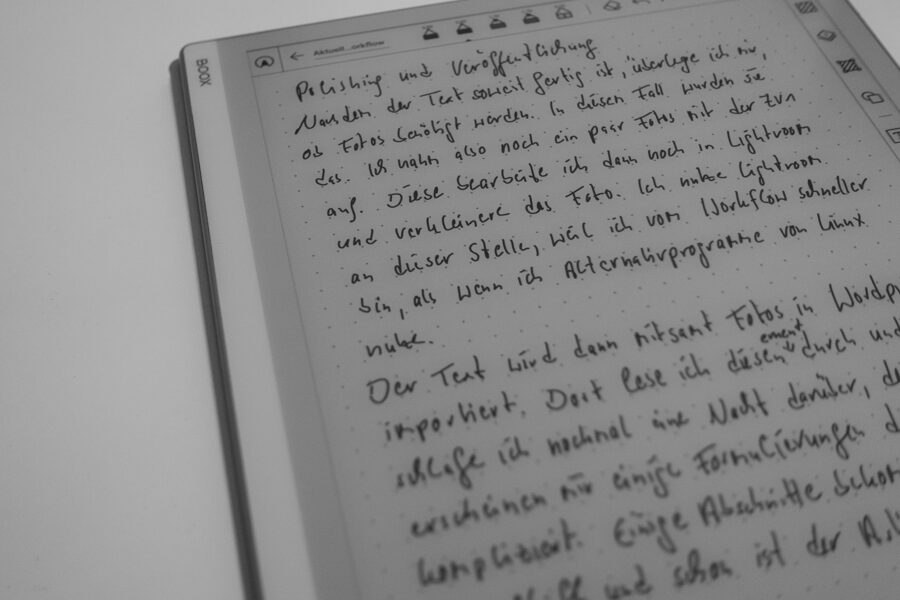 BOOX
Aktuell...orkflow
Polishing und Veröffentlichung
Nachdem der Text soweit fertig ist, überlege ich mir,
ob Fotos benötigt werden. In diesem Fall wurden sie
das. Ich nahm also noch ein paar Fotos mit der ZV1
auf. Diese bearbeite ich dann noch in Lightroom
und verkleinere das Foto. Ich nutze Lightroom
an dieser Stelle, weil ich vom Workflow schneller
bin, als wenn ich Alternativprogramme von Linux
nutze.
Der Text wird dann mitsamt Fotos in Wordpr
importiert. Dort lese ich diesen ement durch und
schlafe ich nochmal eine Nacht darüber, de
erscheinen mir einige Formulierungen
kompliziert. Einige Abschnitte
und schon ist der